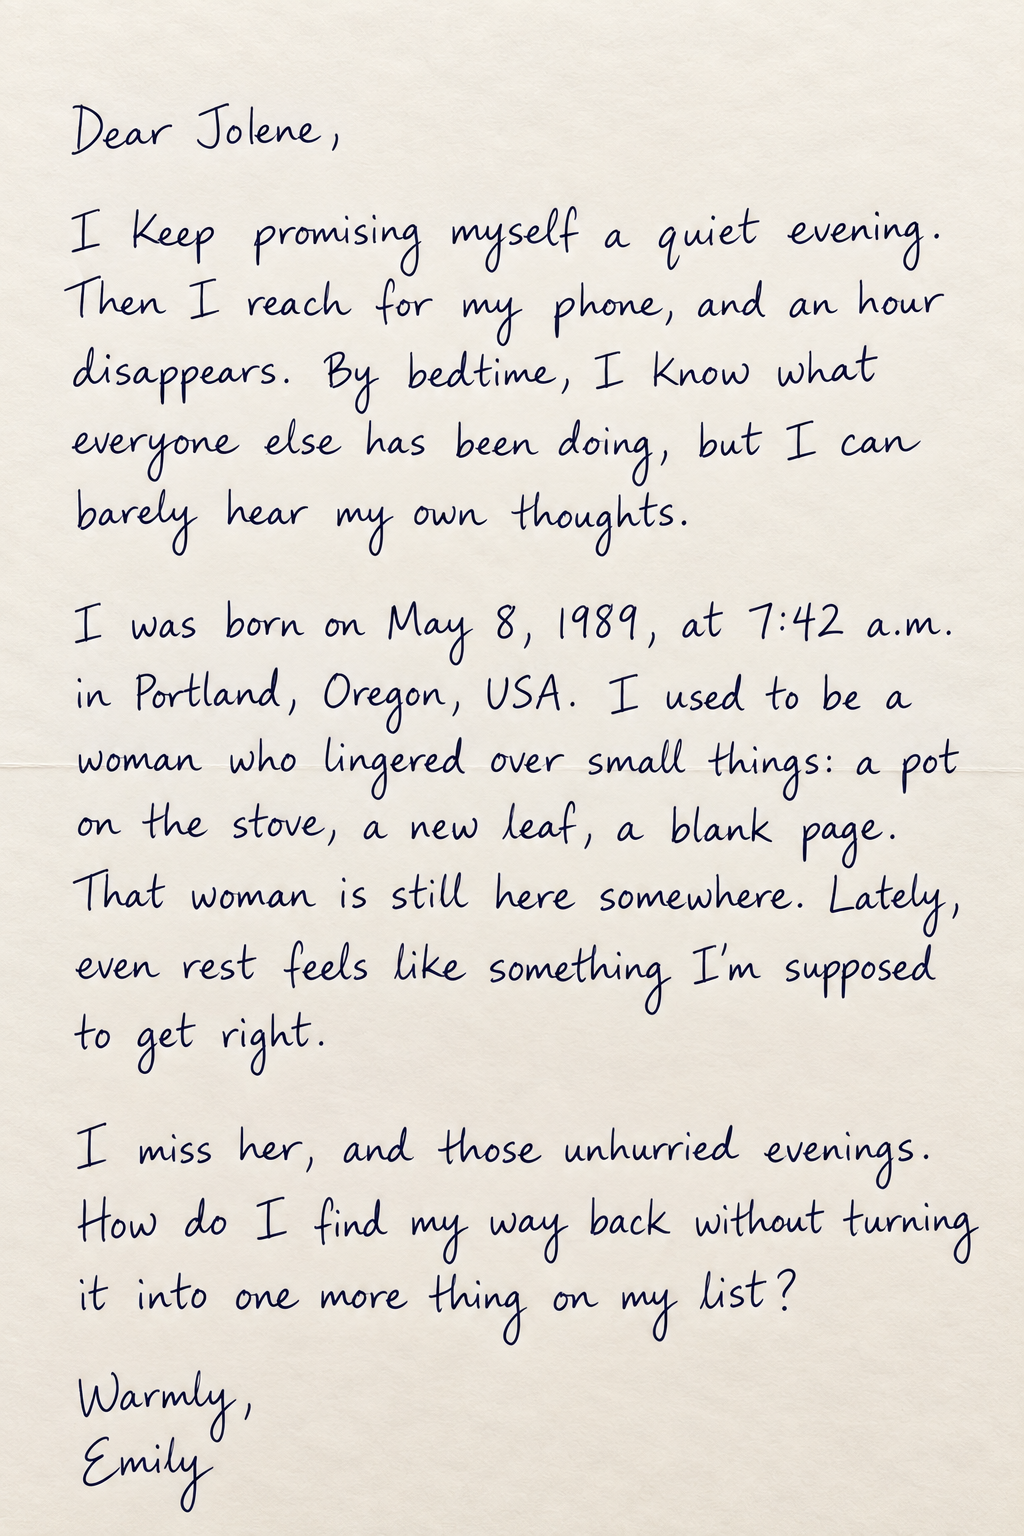 Dear Jolene,
I keep promising myself a quiet evening.
Then I reach for my phone, and an hour
disappears. By bedtime, I know what
everyone else has been doing, but I can
barely hear my own thoughts.
I was born on May 8, 1989, at 7:42 a.m.
in Portland, Oregon, USA. I used to be a
woman who lingered over small things: a pot
on the stove, a new leaf, a blank page.
That woman is still here somewhere. Lately,
even rest feels like something I'm supposed
to get right.
I miss her, and those unhurried evenings.
How do I find my way back without turning
it into one more thing on my list?
Warmly,
Emily